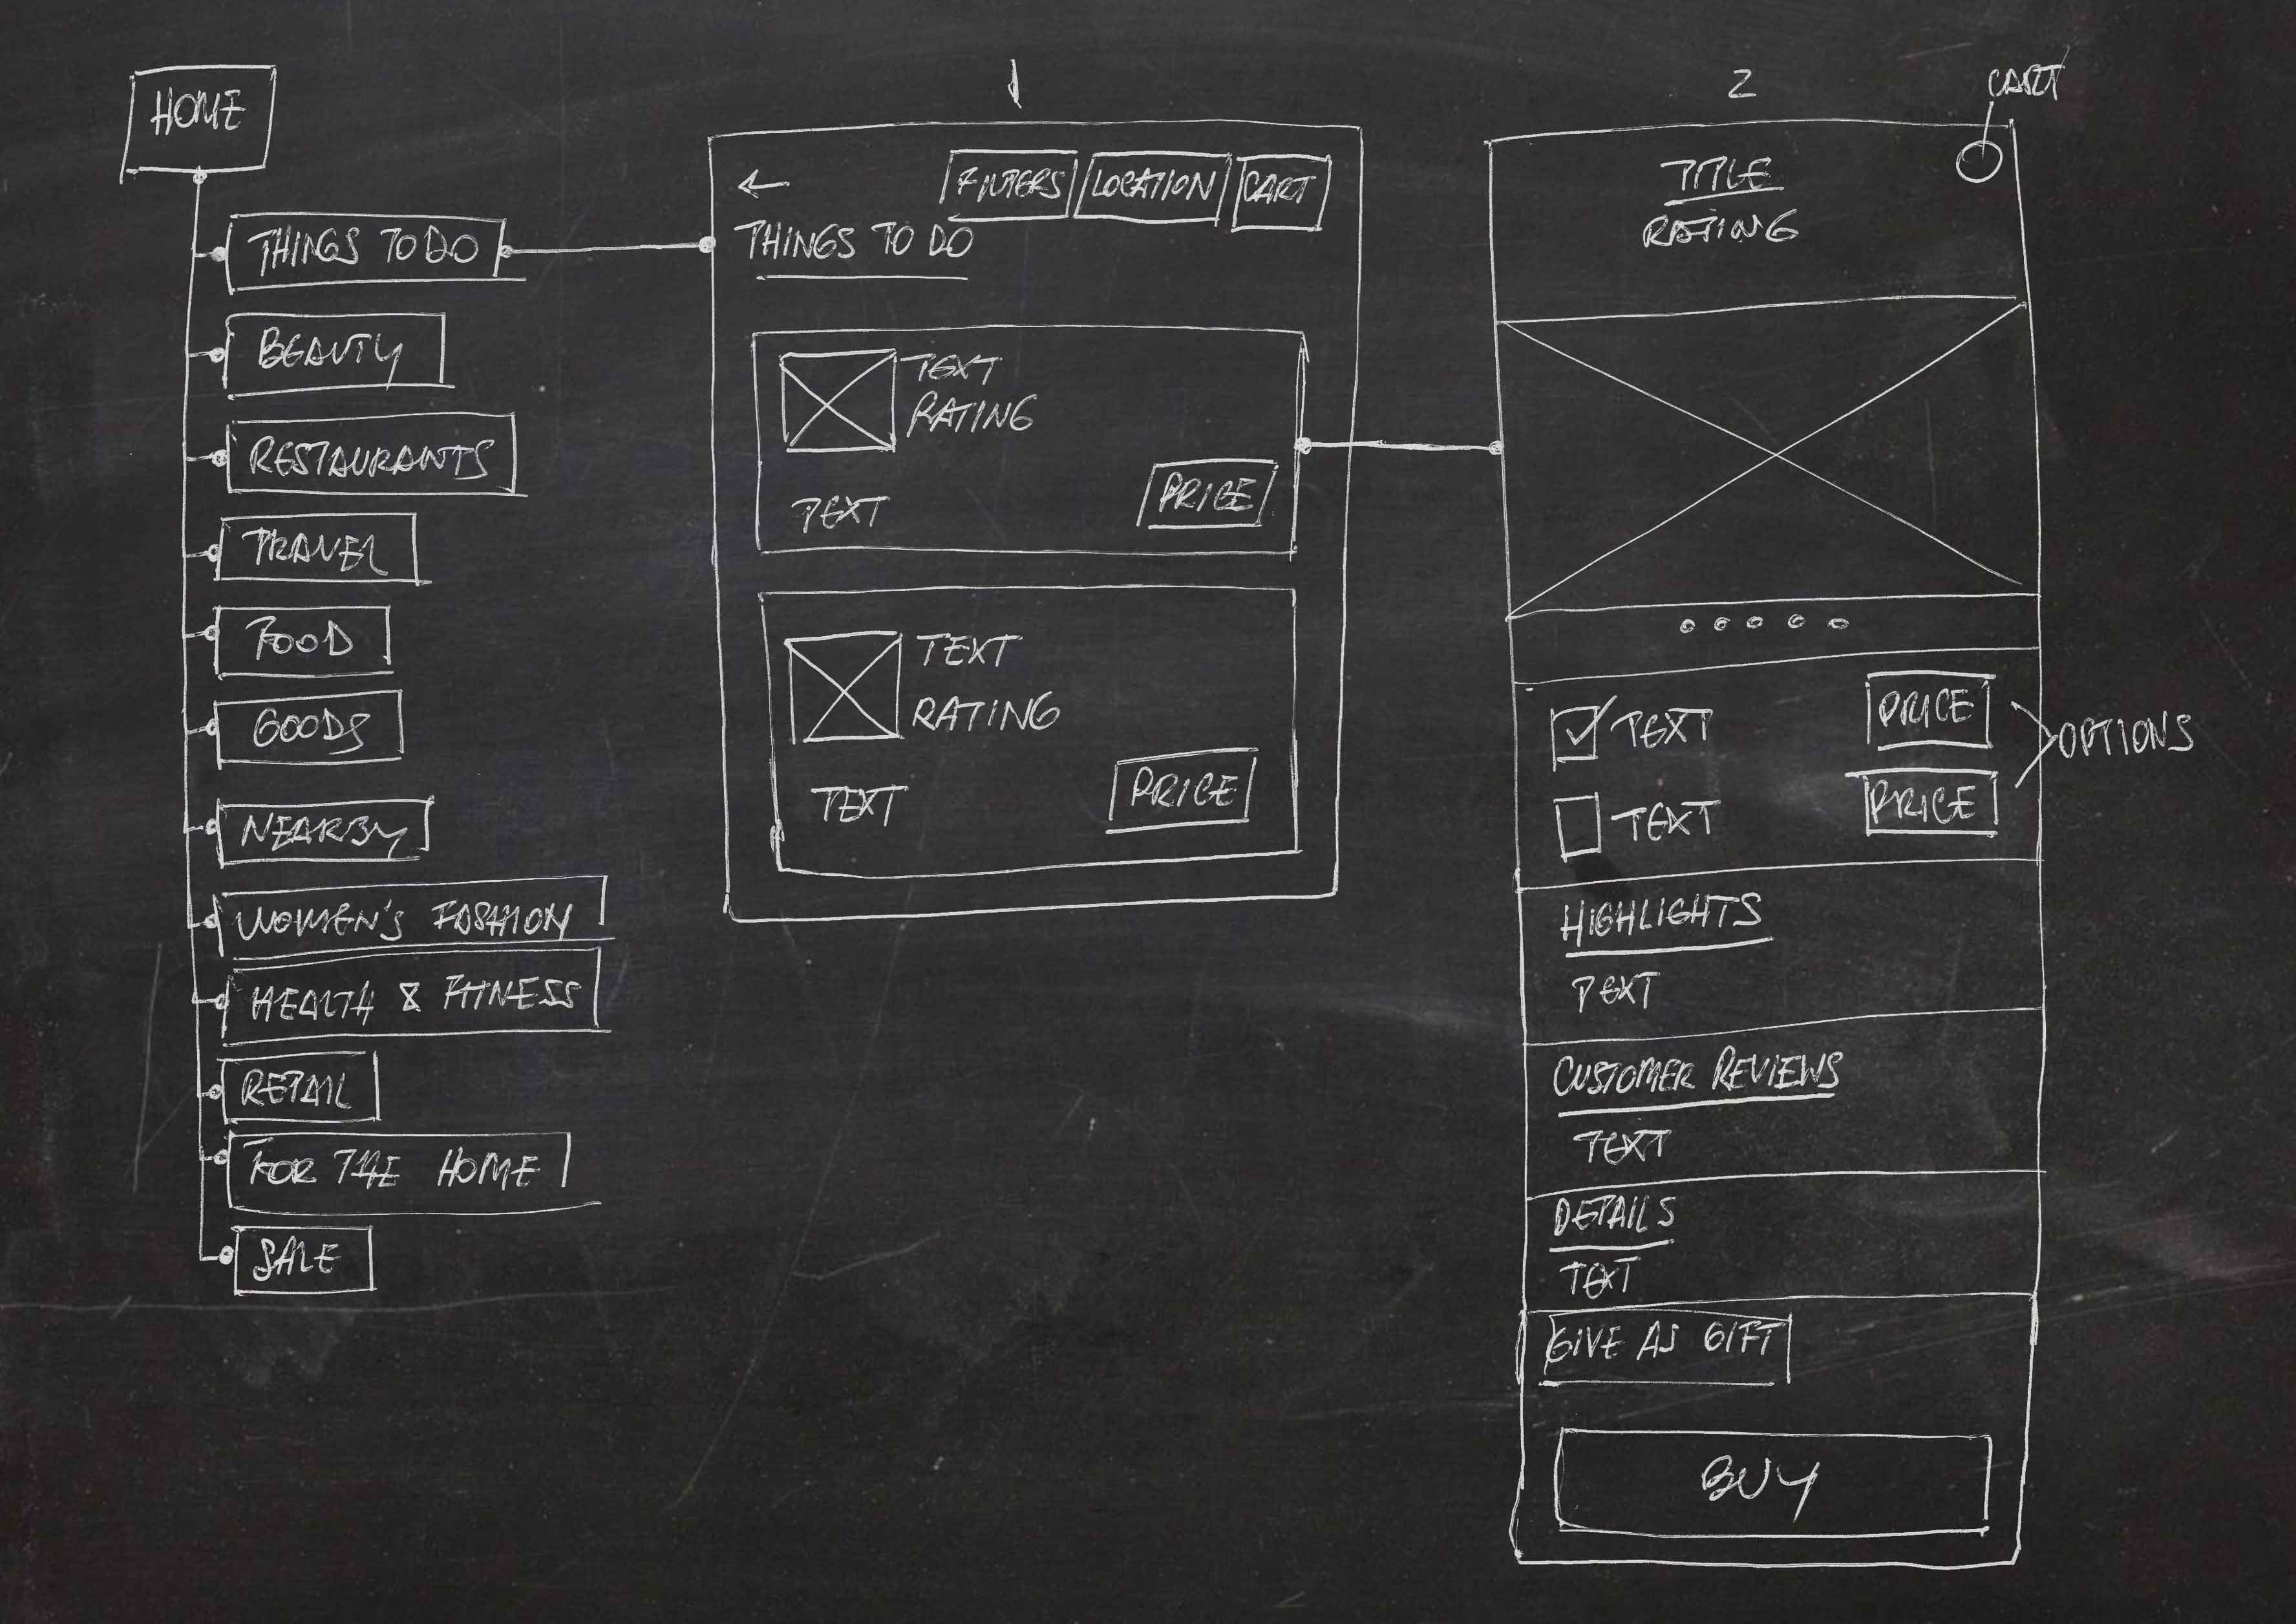 HOME
THINGS TO DO
BEAUTY
RESTAURANTS
TRAVEL
FOOD
GOODS
NEARBY
WOMEN'S FASHION
HEALTH & FITNESS
RETAIL
FOR THE HOME
SALE
1
FILTERS LOCATION CART
THINGS TO DO
TEXT
RATING
TEXT PRICE
TEXT
RATING
TEXT PRICE
2
CART
TITLE
RATING
TEXT PRICE
OPTIONS
TEXT PRICE
HIGHLIGHTS
TEXT
CUSTOMER REVIEWS
TEXT
DETAILS
TEXT
GIVE AS GIFT
BUY